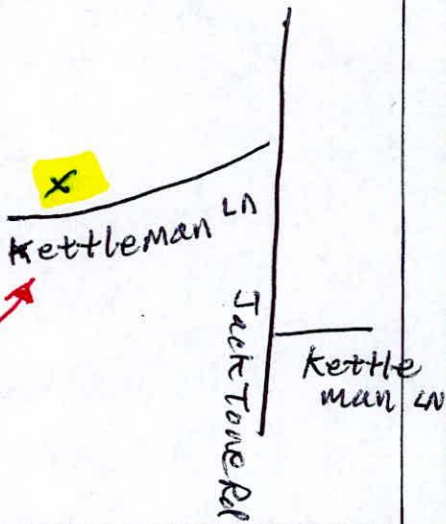 x
Kettleman LN
Jack Tone Rd
Kettle
man LN